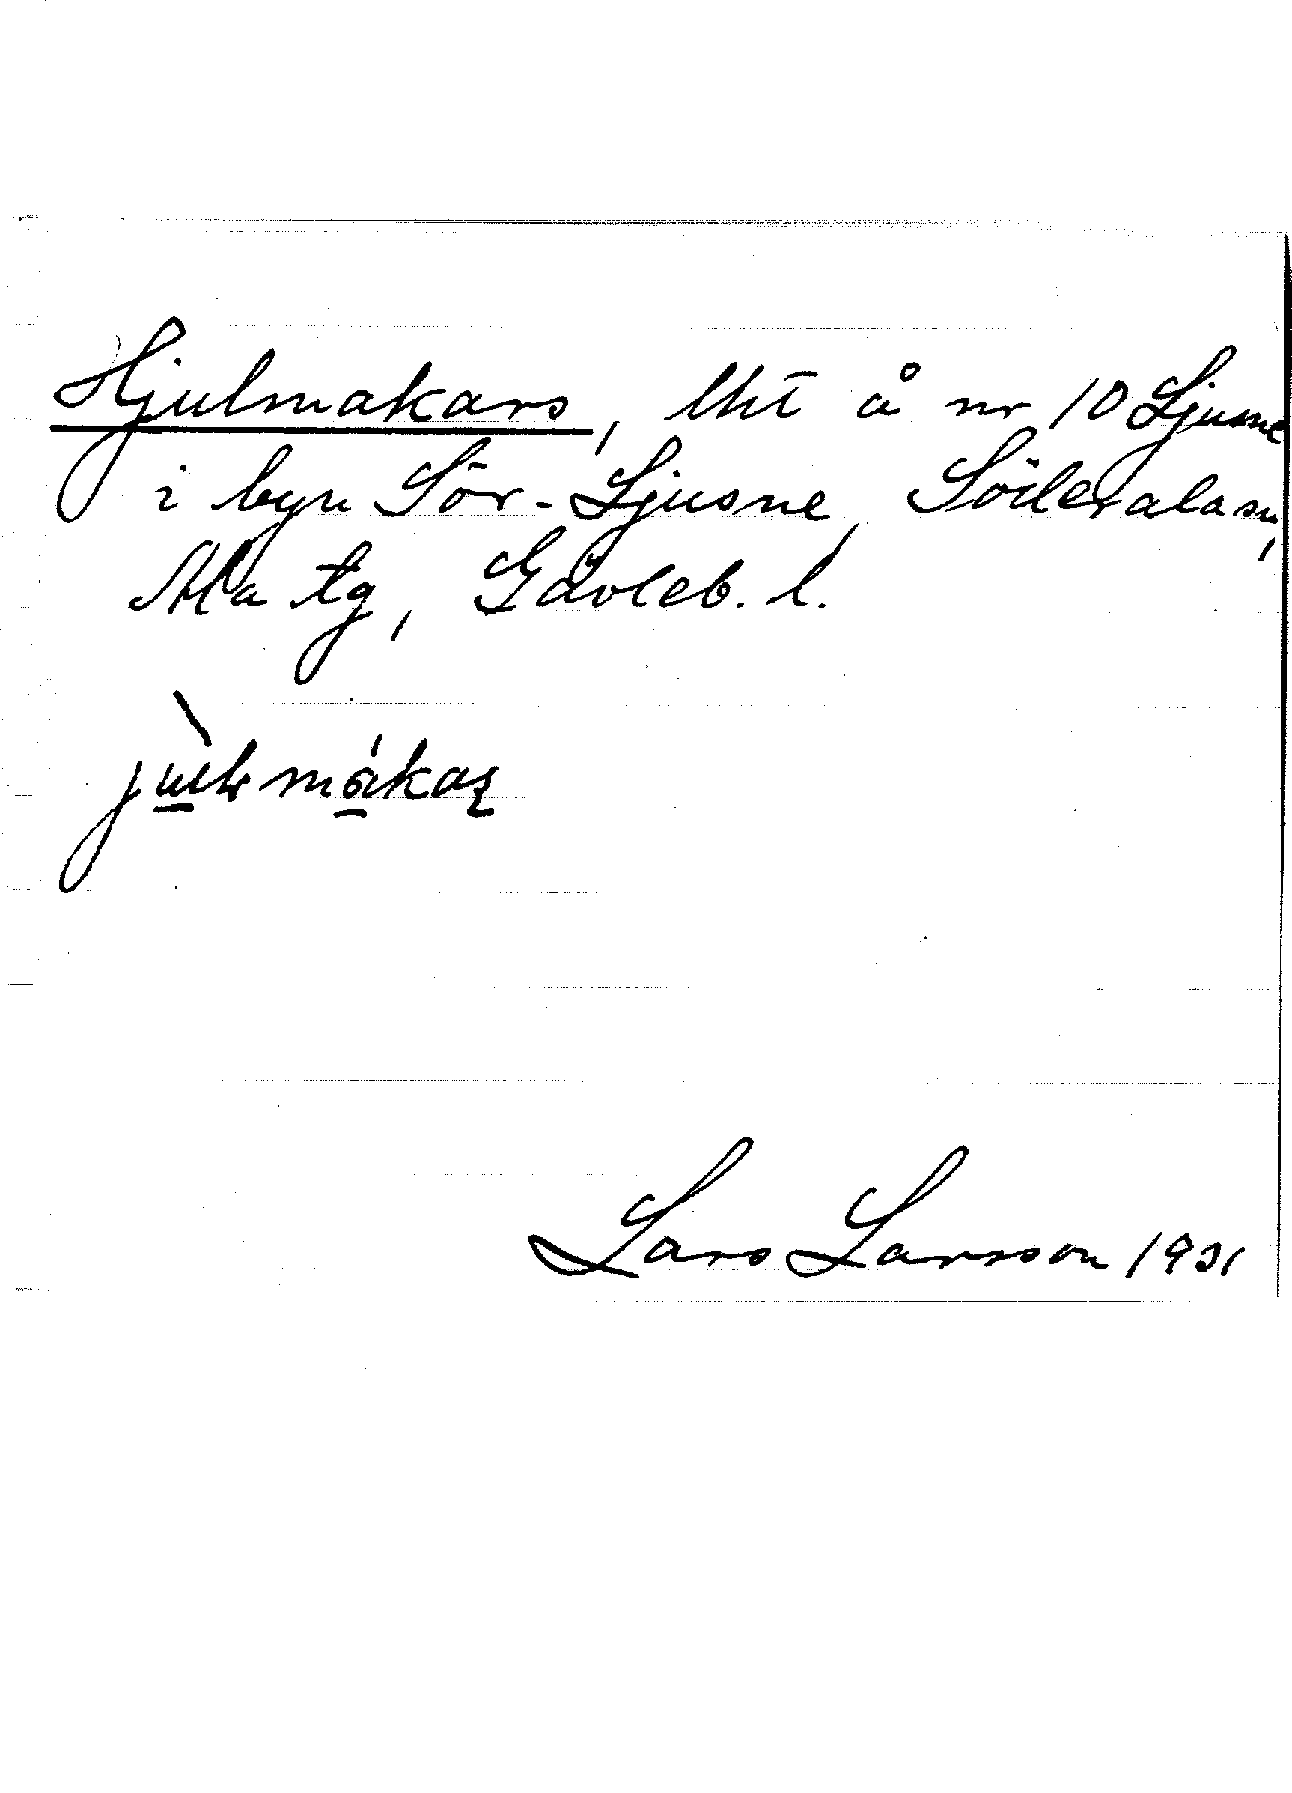 Hjulmakars, lht å nr 10 Ljusne
i byn Sör-Ljusne, Söderala sn,
Ala tg, Gävleb. l.
Lars Larsson 1931